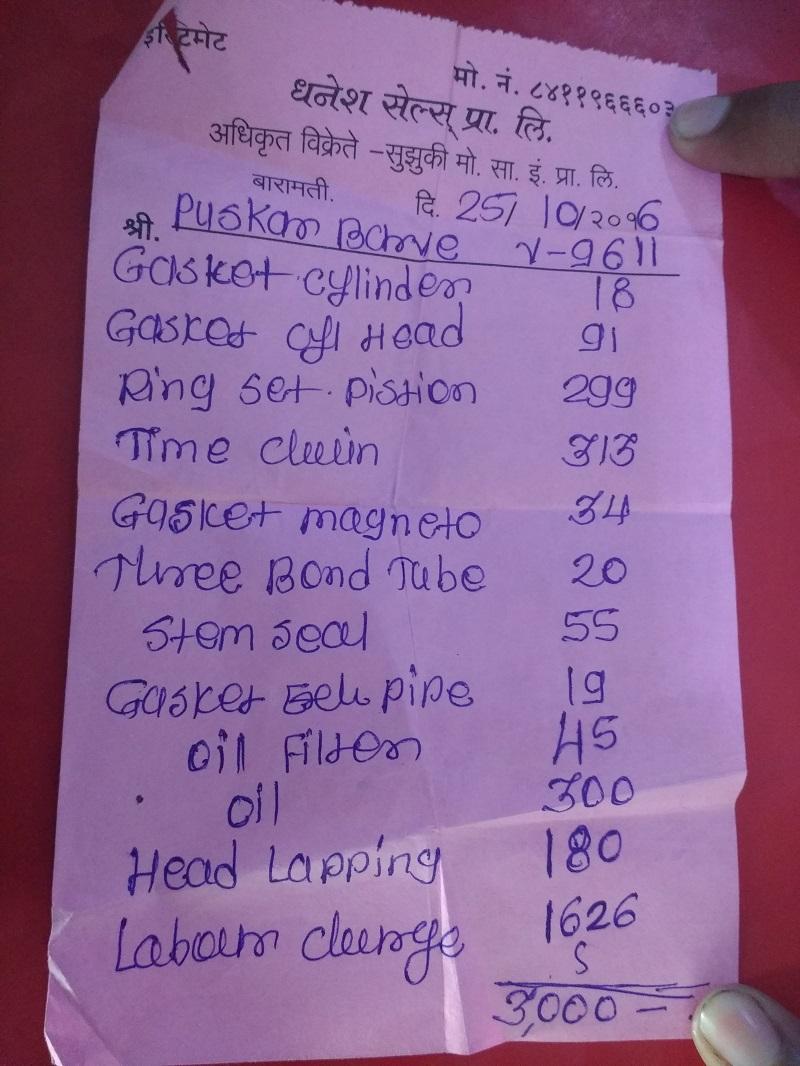 इस्टिमेट
मो. नं. ८४११९६६६०३
धनेश सेल्स् प्रा. लि.
अधिकृत विक्रेते -सुझुकी मो. सा. इं. प्रा. लि.
बारामती. दि. 25/ 10/२०१6
श्री. Puskar Barve V-9611
Gasket cylinder 18
Gasket cyl Head 91
Ring set. pistion 299
Time chain 313
Gasket magneto 34
Three Bond Tube 20
Stem seal 55
Gasket pipe 19
Oil Filter 45
Oil 300
Head Lapping 180
Labour charge 1626
3,000 -